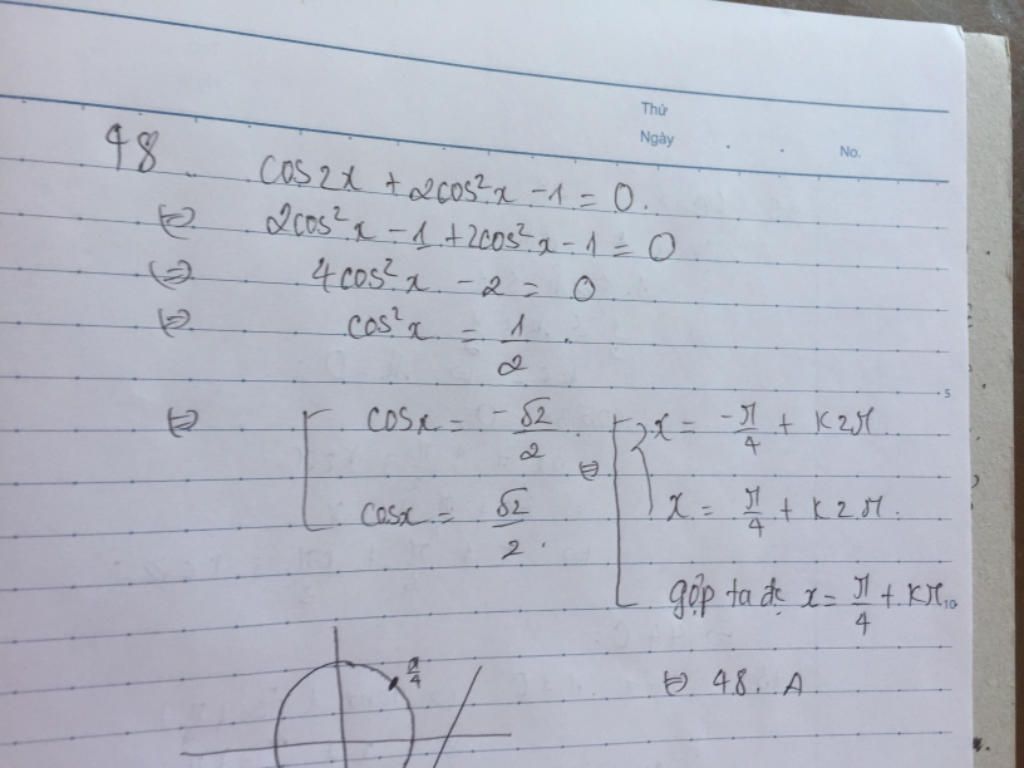 Thứ
Ngày
No.
48
cos2x + 2cos²x - 1 = 0.
⇔ 2cos²x - 1 + 2cos²x - 1 = 0
⇔ 4cos²x - 2 = 0
⇔ cos²x = 1/2.
5
⇔ [ cosx = -√2/2. ⇔ [ x = -π/4 + k2π
cosx = √2/2. x = π/4 + k2π.
gộp ta đc x = π/4 + kπ.
10
π/4
⇔ 48. A